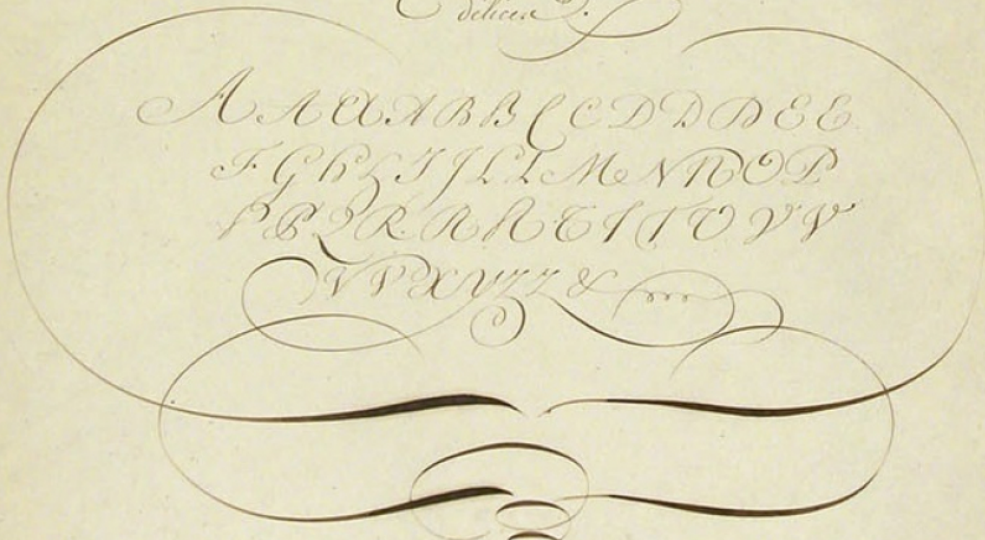 delicea
A A A A B B C C D D D E E
F G H Z I J L L M N N O P
P B Q R R R T T T V V V
V V X Y Z Z &